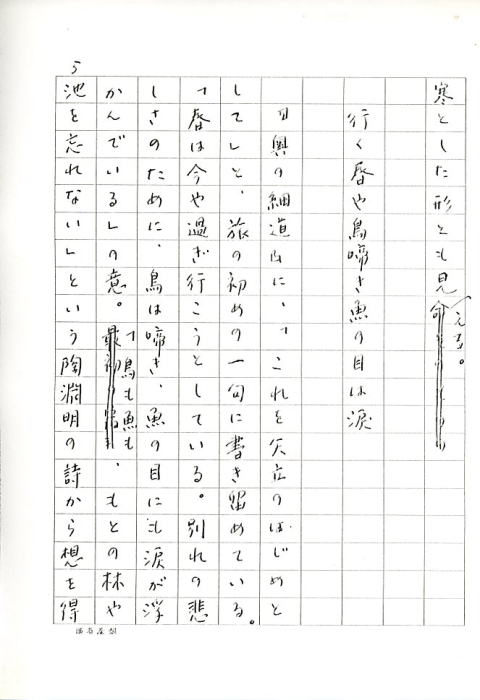 寒とした形とも見える。
行く春や鳥啼き魚の目は泪
『奥の細道』に、「これを矢立のはじめと
して」と、旅の初めの一句に書き留めている。
「春は今や過ぎ行こうとしている。別れの悲
しさのために、鳥は啼き、魚の目にも涙が浮
かんでいる」の意。「鳥も魚も、もとの林や
池を忘れない」という陶淵明の詩から想を得
5